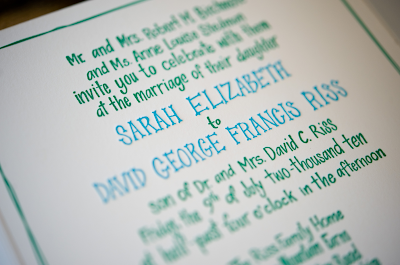 Mr. and Mrs. Robert M.
and Ms. Anne Louise
invite you to celebrate with them
at the marriage of their daughter
SARAH ELIZABETH
to
DAVID GEORGE FRANCIS RISS
son of Dr. and Mrs. David C. Riss
Friday the 9th of July two-thousand ten
at half past four o'clock in the afternoon
The Riss Family Home